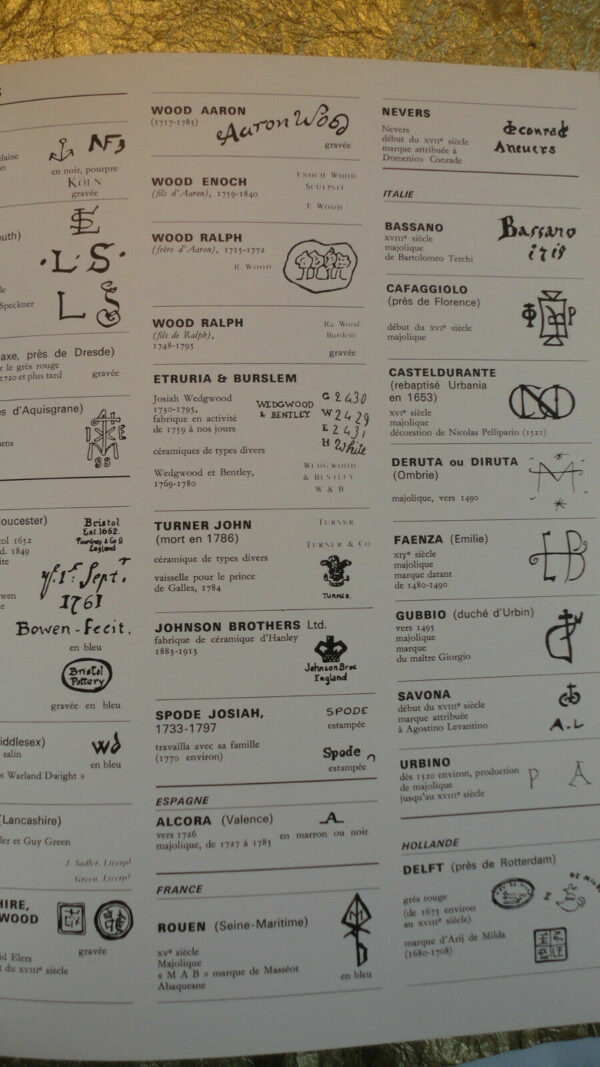 NF
elaine
en noir, pourpre
KÖLN
gravée
·L·S·
L S
Speckner
axe, près de Dresde)
r le grès rouge
1720 et plus tard
gravée
es d'Aquisgrane)
oucester)
Bristol
Est. 1652.
Pountney & Co Ld
England
tol 1652
d. 1849
1st Sept.
1761
Bowen-fecit.
en bleu
Bristol
Pottery
gravée en bleu
iddlesex)
salin
en bleu
« Warland Dwight »
(Lancashire)
ler et Guy Green
J. Sadler, Liverpl
Green, Liverpl
HIRE,
WOOD
gravée
id Elers
t du XVIIIe siècle
WOOD AARON
(1717-1785)
Aaron Wood
gravée
WOOD ENOCH
(fils d'Aaron), 1759-1840
ENOCH WOOD
SCULPSIT
WOOD
WOOD RALPH
(frère d'Aaron), 1715-1772
R. WOOD
WOOD RALPH
(fils de Ralph),
1748-1795
Ra. Wood
Burslem
gravée
ETRURIA & BURSLEM
Josiah Wedgwood
1730-1795,
fabrique en activité
de 1759 à nos jours
WEDGWOOD
& BENTLEY
G 2430
W 2429
E 2431
H White
céramiques de types divers
Wedgwood et Bentley,
1769-1780
WEDGWOOD
& BENTLEY
W & B
TURNER JOHN
(mort en 1786)
TURNER
TURNER & CO
céramique de types divers
vaisselle pour le prince
de Galles, 1784
TURNER
JOHNSON BROTHERS Ltd.
fabrique de céramique d'Hanley
1883-1913
Johnson Bros
England
SPODE JOSIAH,
1733-1797
SPODE
estampée
travailla avec sa famille
(1770 environ)
Spode
estampée
ESPAGNE
ALCORA (Valence)
A
vers 1726
en marron ou noir
majolique, de 1727 à 1785
FRANCE
ROUEN (Seine-Maritime)
XVe siècle
Majolique
« M A B » marque de Masséot
Abaquesne
en bleu
NEVERS
Nevers
début du XVIIe siècle
marque attribuée à
Domenico Conrade
deconrade
Aneuers
ITALIE
BASSANO
XVIIIe siècle
majolique
de Bartolomeo Terchi
Bassano
CAFAGGIOLO
(près de Florence)
début du XVIe siècle
majolique
CASTELDURANTE
(rebaptisé Urbania
en 1653)
XVIe siècle
majolique
décoration de Nicolas Pellipario (1521)
DERUTA ou DIRUTA
(Ombrie)
majolique, vers 1490
FAENZA (Emilie)
XIVe siècle
majolique
marque datant
de 1480-1490
GUBBIO (duché d'Urbin)
vers 1495
majolique
marque
du maître Giorgio
SAVONA
début du XVIIIe siècle
marque attribuée
à Agostino Levantino
A.L
URBINO
dès 1520 environ, production
de majolique
jusqu'au XVIIIe siècle
P A
HOLLANDE
DELFT (près de Rotterdam)
grès rouge
(de 1675 environ
au XVIIIe siècle)
marque d'Arij de Milda
(1680-1708)